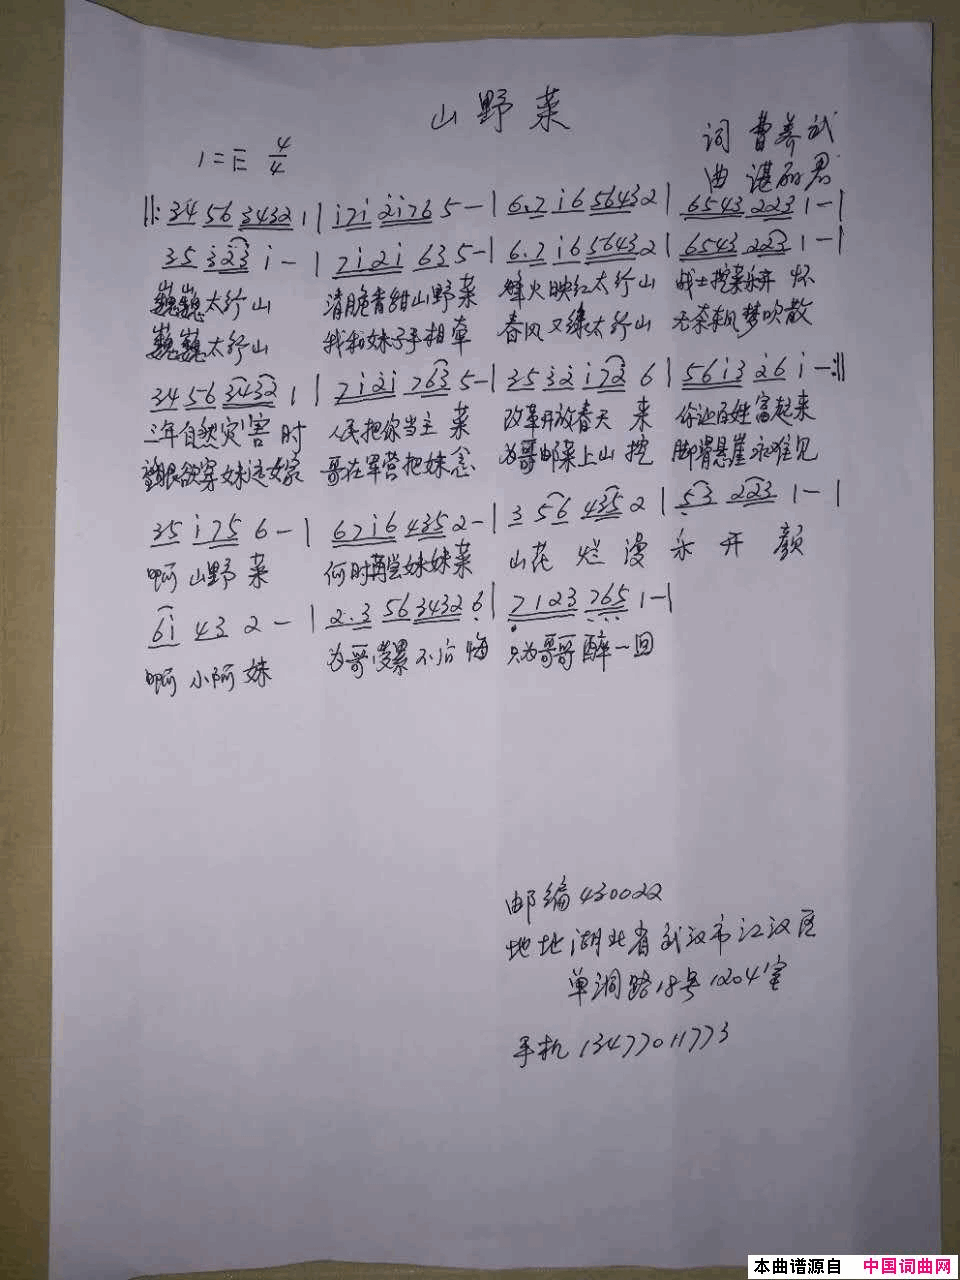 山野菜
1=E 4/4
词 曹养武
曲 谌丽君
‖: 34 56 3432 1 | i7i 2i76 5 - | 6.7 i6 56432 | 6543 223 1 - |
35 323 i - | 7i2i 63 5 - | 6.7 i6 56432 | 6543 223 1 - |
巍巍太行山 清脆香甜山野菜 烽火映红太行山 战士挖菜乐开怀
巍巍太行山 我和妹子手相牵 春风又绿太行山 无奈梦吹散
34 56 3432 1 | 7i2i 763 5 - | 35 32 i72 6 | 56i3 26 i - :‖
三年自然灾害时 人民把你当主菜 改革开放春天来 你让百姓富起来
望眼欲穿妹 哥在军营把妹念 为哥邮菜上山挖 脚滑悬崖永难见
35 i75 6 - | 67i6 435 2 - | 3 56 435 2 | 53 223 1 - |
啊 山野菜 何时再尝妹妹菜 山花烂漫乐开颜
6i 43 2 - | 2.3 56 3432 6 | 7123 765 1 - |
啊 小阿妹 为哥受累不后悔 只为哥哥醉一回
邮编430022
地址湖北省武汉市江汉区
单洞路18号1204室
手机13477011773
本曲谱源自 中国词曲网